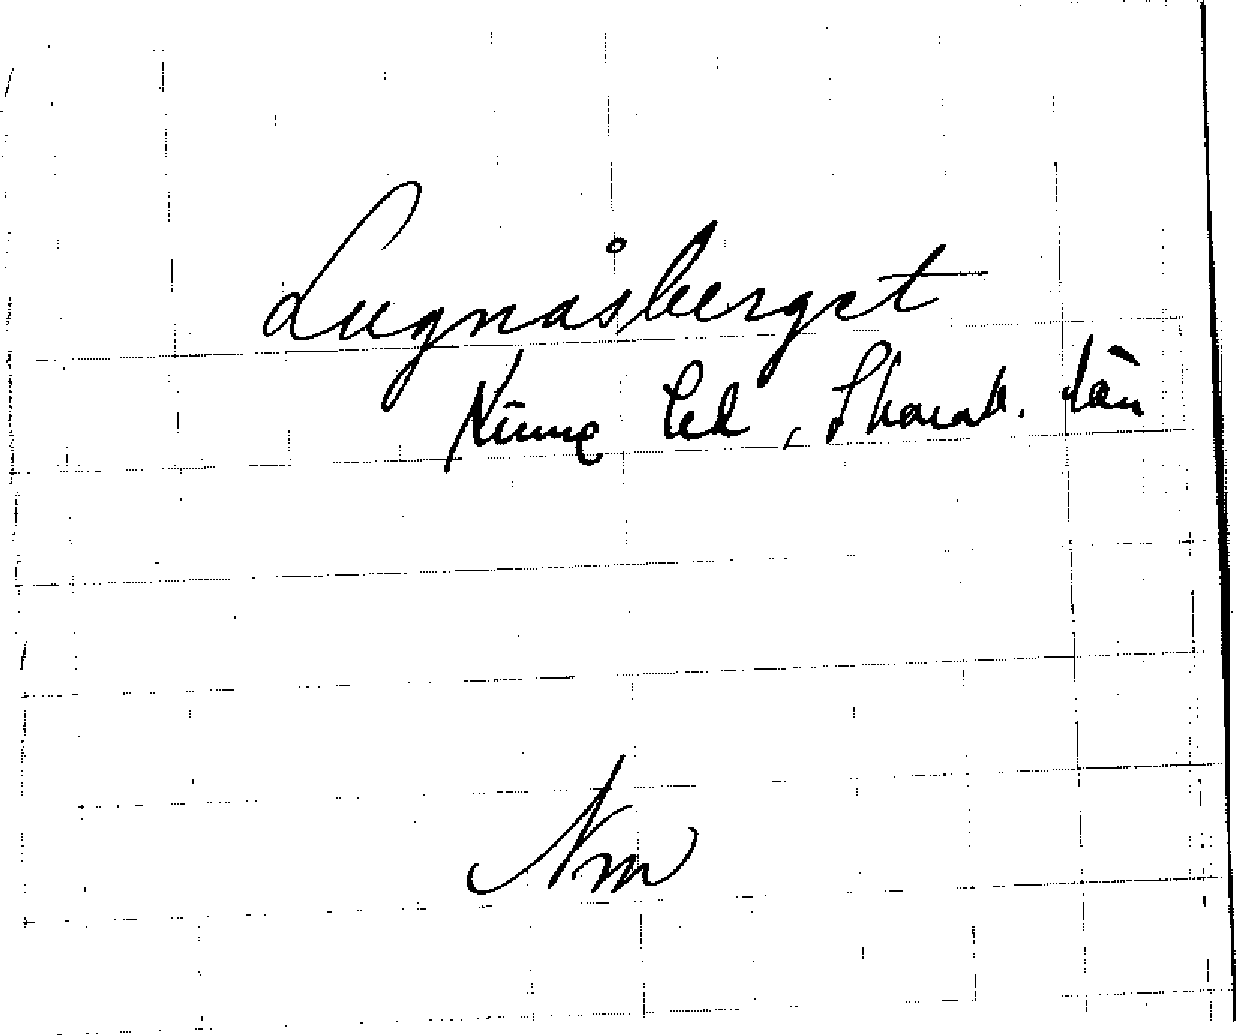 Lugnåsberget
Kinne hd, Skarab. län
Nm